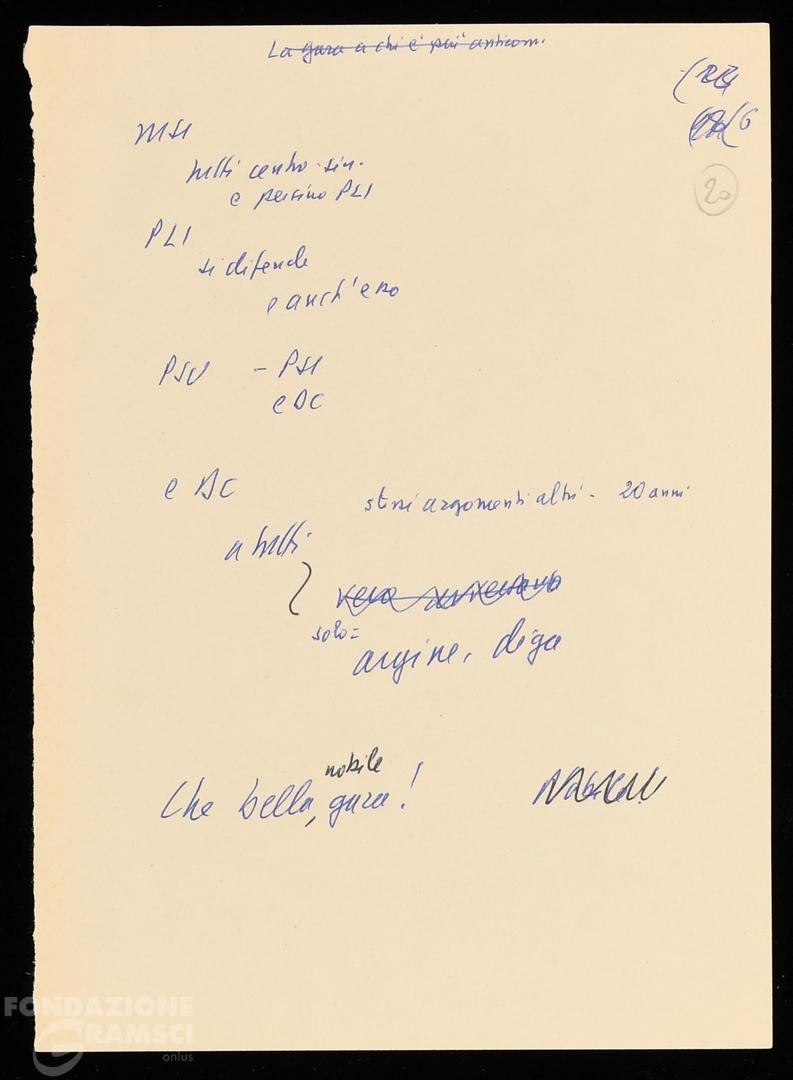 La gara a chi è più anticom.
20
MSI
tutti centro-sin.
e persino PLI
PLI
si difende
e anch'esso
PSU - PSI
e DC
e DC
stessi argomenti altri - 20 anni
a tutti
solo=
argine, diga
nobile
Che bella, gara!
FONDAZIONE
GRAMSCI
onlus